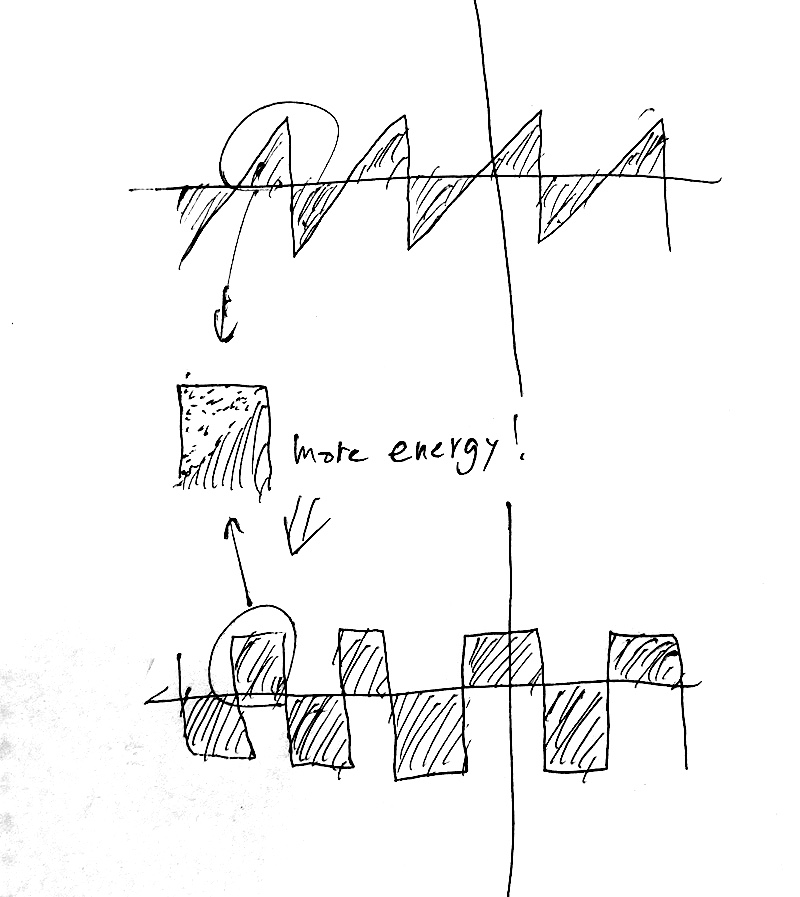 more energy!